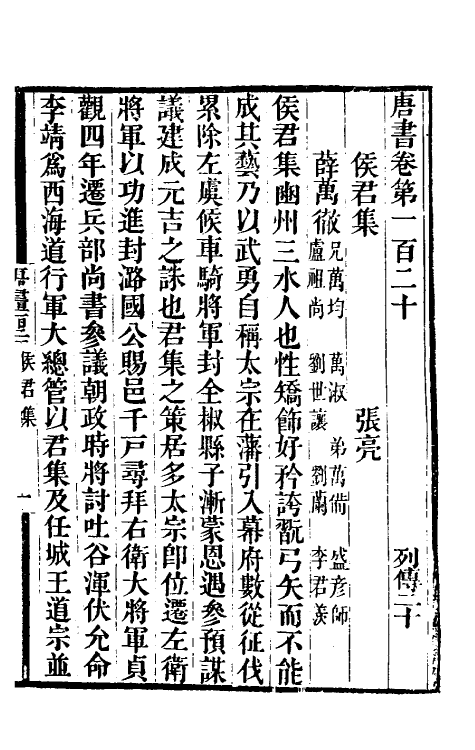 唐書卷第一百二十 列傳二十
侯君集 張亮
薛萬徹 兄萬均 萬淑 弟萬備 盛彥師
盧祖尚 劉世讓 劉蘭 李君羨
侯君集豳州三水人也性矯飾好矜誇翫弓矢而不能
成其藝乃以武勇自稱太宗在藩引入幕府數從征伐
累除左虞候車騎將軍封全椒縣子漸蒙恩遇參預謀
議建成元吉之誅也君集之策居多太宗卽位遷左衛
將軍以功進封潞國公賜邑千戸尋拜右衛大將軍貞
觀四年遷兵部尚書參議朝政時將討吐谷渾伏允命
李靖爲西海道行軍大總管以君集及任城王道宗並
侯君集
一